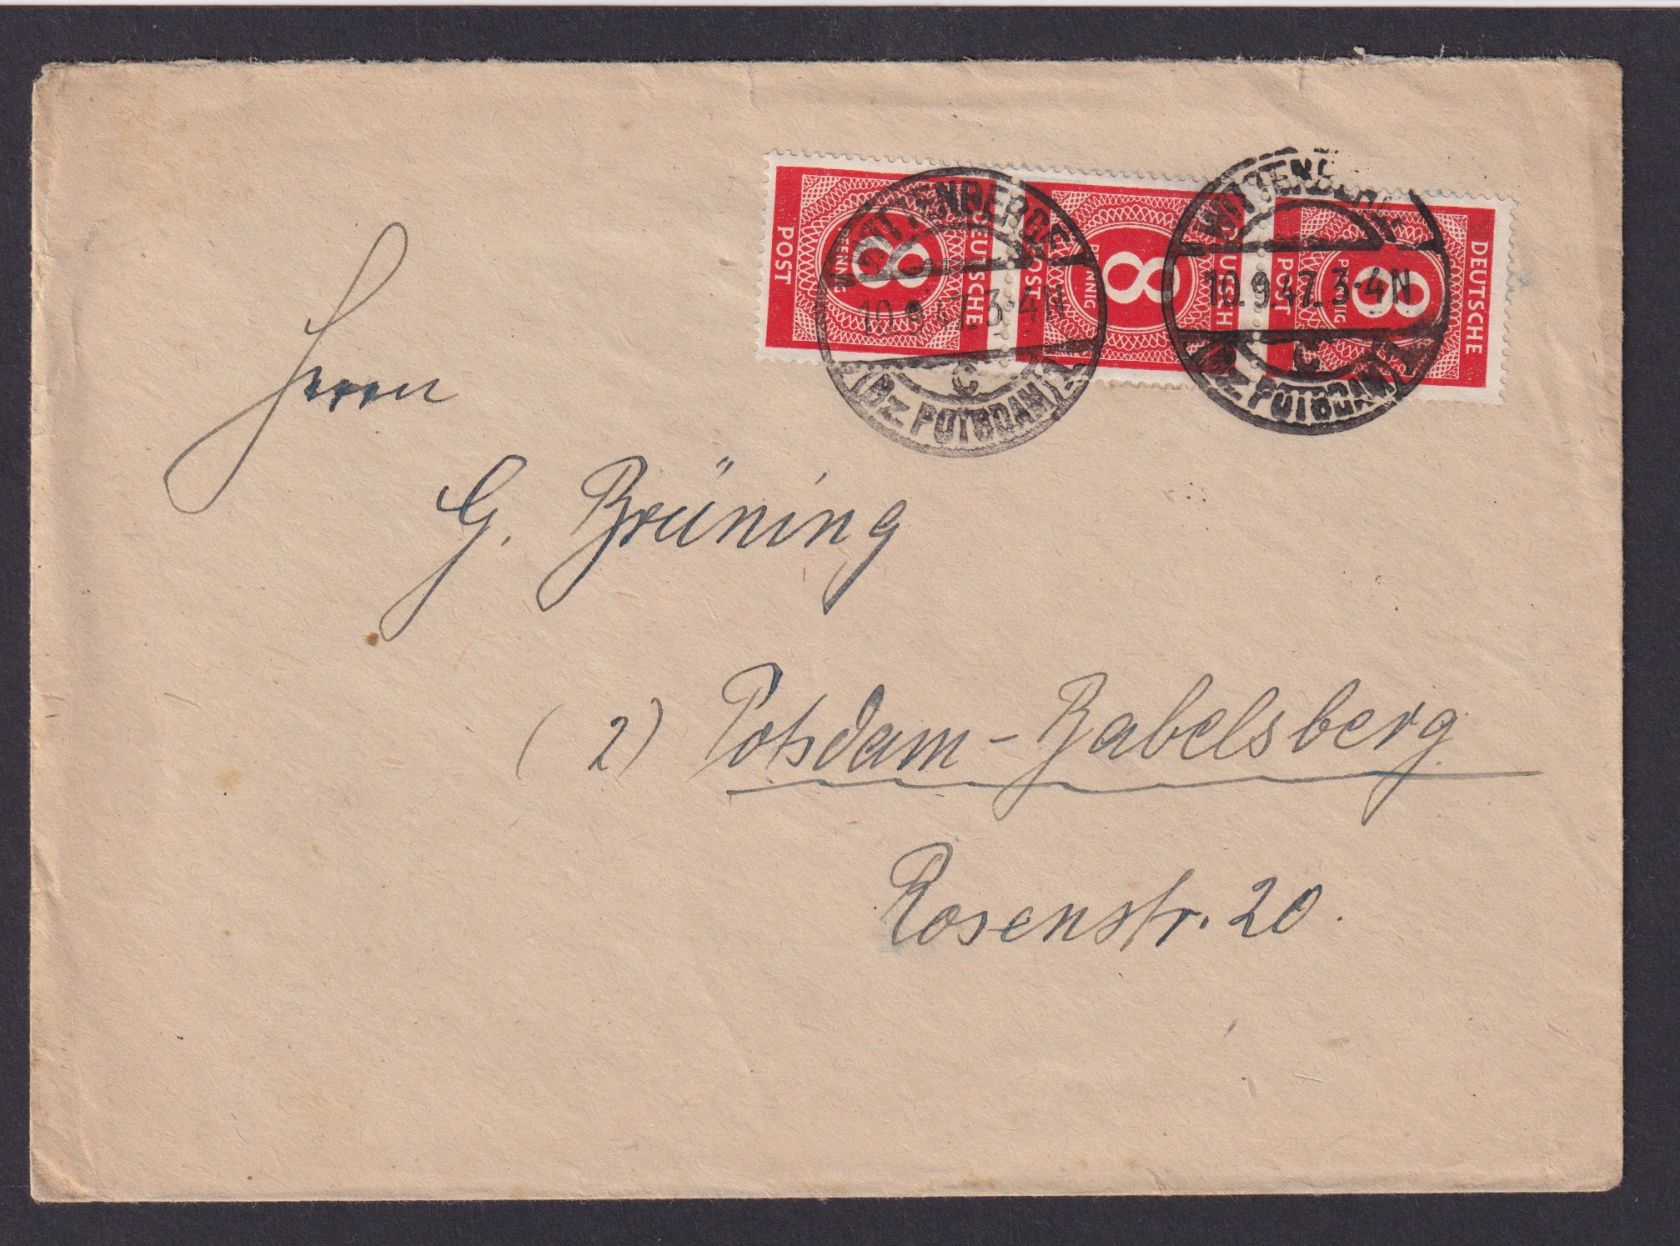 DEUTSCHE POST
8
PFENNIG
DEUTSCHE POST
8
PFENNIG
DEUTSCHE POST
8
PFENNIG
WITTENBERGE
10.9.47.3-4N
c
(BZ. POTSDAM)
WITTENBERGE
10.9.47.3-4N
c
(BZ. POTSDAM)
Herrn
G. Brüning
(2) Potsdam-Babelsberg
Rosenstr. 20.